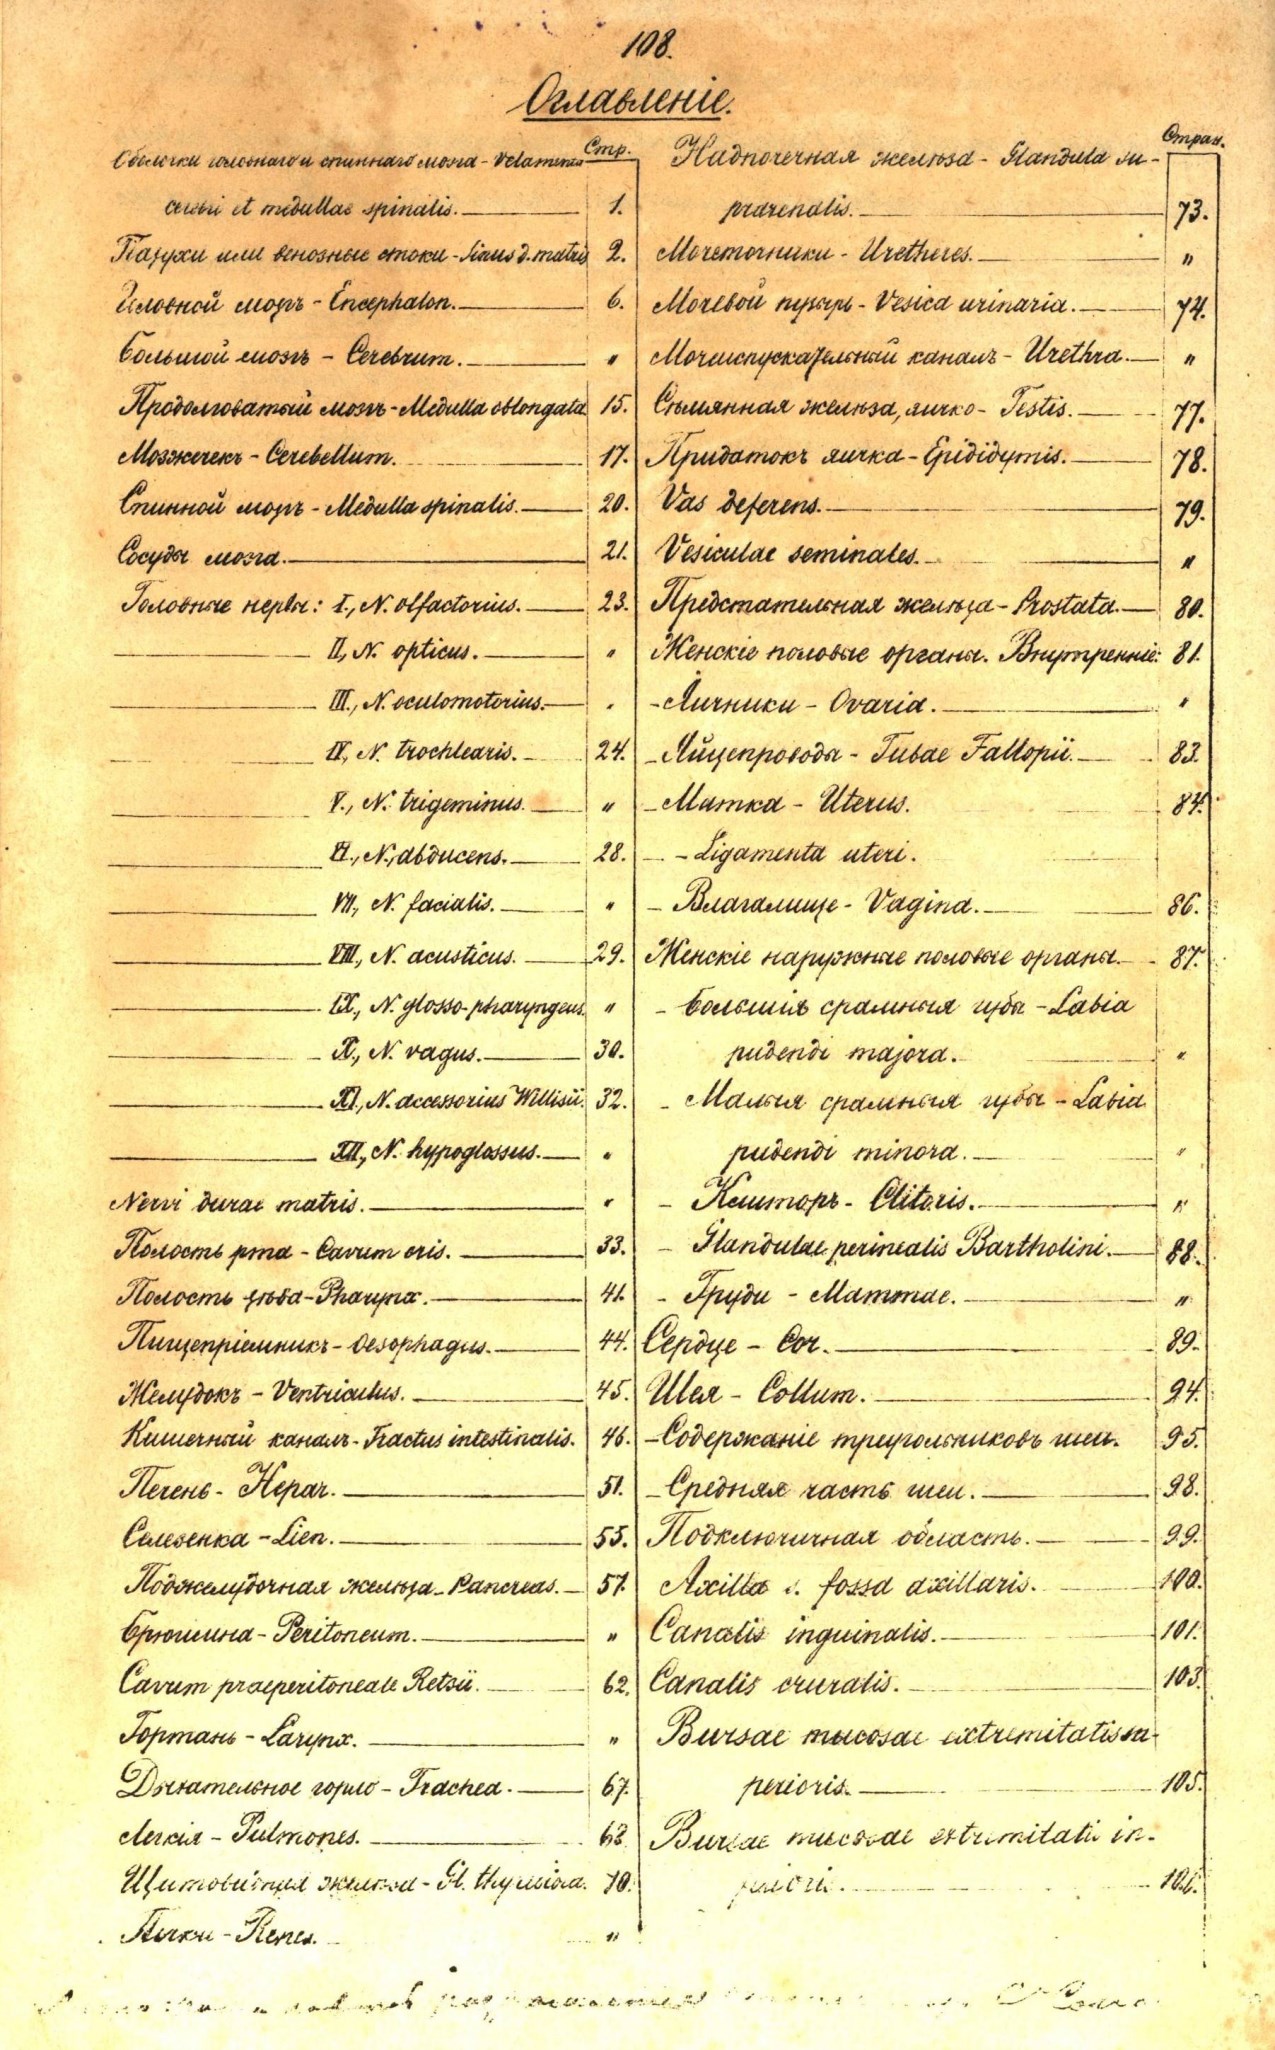 108.
Оглавленіе.
Стр.
Оболочки головнаго и спиннаго мозга - Velamenta
cerebri et medullae spinalis. 1.
Пазухи или венозные стоки - Sinus d. matris 2.
Головной мозгъ - Encephalon. 6.
Большой мозгъ - Cerebrum. "
Продолговатый мозгъ - Medulla oblongata 15.
Мозжечекъ - Cerebellum. 17.
Спинной мозгъ - Medulla spinalis. 20.
Сосуды мозга. 21.
Головные нервы: I., N. olfactorius. 23.
II., N. opticus. "
III., N. oculomotorius. "
IV., N. trochlearis. 24.
V., N. trigeminus. "
VI., N. abducens. 28.
VII., N. facialis. "
VIII., N. acusticus. 29.
IX., N. glosso-pharyngeus. "
X., N. vagus. 30.
XI., N. accessorius Willisii. 32.
XII., N. hypoglossus. "
Nervi durae matris. "
Полость рта - Cavum oris. 33.
Полость зѣва - Pharynx. 41.
Пищепріемникъ - Oesophagus. 44.
Желудокъ - Ventriculus. 45.
Кишечный каналъ - Tractus intestinalis. 46.
Печень - Hepar. 51.
Селезенка - Lien. 55.
Поджелудочная желѣза - Pancreas. 57.
Брюшина - Peritoneum. "
Cavum praeperitoneale Retsii. 62.
Гортань - Larynx. "
Дыхательное горло - Trachea. 67.
Легкія - Pulmones. 68.
Щитовидная желѣза - Gl. thyreoidea. 70.
Почки - Renes. "
Стран.
Надпочечная желѣза - Glandula su-
prarenalis. 73.
Мочеточники - Uretheres. "
Мочевой пузырь - Vesica urinaria. 74.
Мочеиспускательный каналъ - Urethra. "
Сѣмянная желѣза, яичко - Testis. 77.
Придатокъ яичка - Epididymis. 78.
Vas deferens. 79.
Vesiculae seminales. "
Предстательная желѣза - Prostata. 80.
Женскіе половые органы. Внутренніе: 81.
- Яичники - Ovaria. "
- Яйцепроводы - Tubae Fallopii. 83.
- Матка - Uterus. 84.
- - Ligamenta uteri.
- Влагалище - Vagina. 86.
Женскіе наружные половые органы. 87.
- Большія срамныя губы - Labia
pudendi majora. "
- Малыя срамныя губы - Labia
pudendi minora. "
- Клиторъ - Clitoris. "
- Glandulae perinealis Bartholini. 88.
- Груди - Mammae. "
Сердце - Cor. 89.
Шея - Collum. 94.
- Содержаніе треугольниковъ шеи. 95.
- Средняя часть шеи. 98.
Подключичная область. 99.
Axilla s. fossa axillaris. 100.
Canalis inguinalis. 101.
Canalis cruralis. 103.
Bursae mucosae extremitatis su-
perioris. 105.
Bursae mucosae extremitatis in-
ferioris. 106.